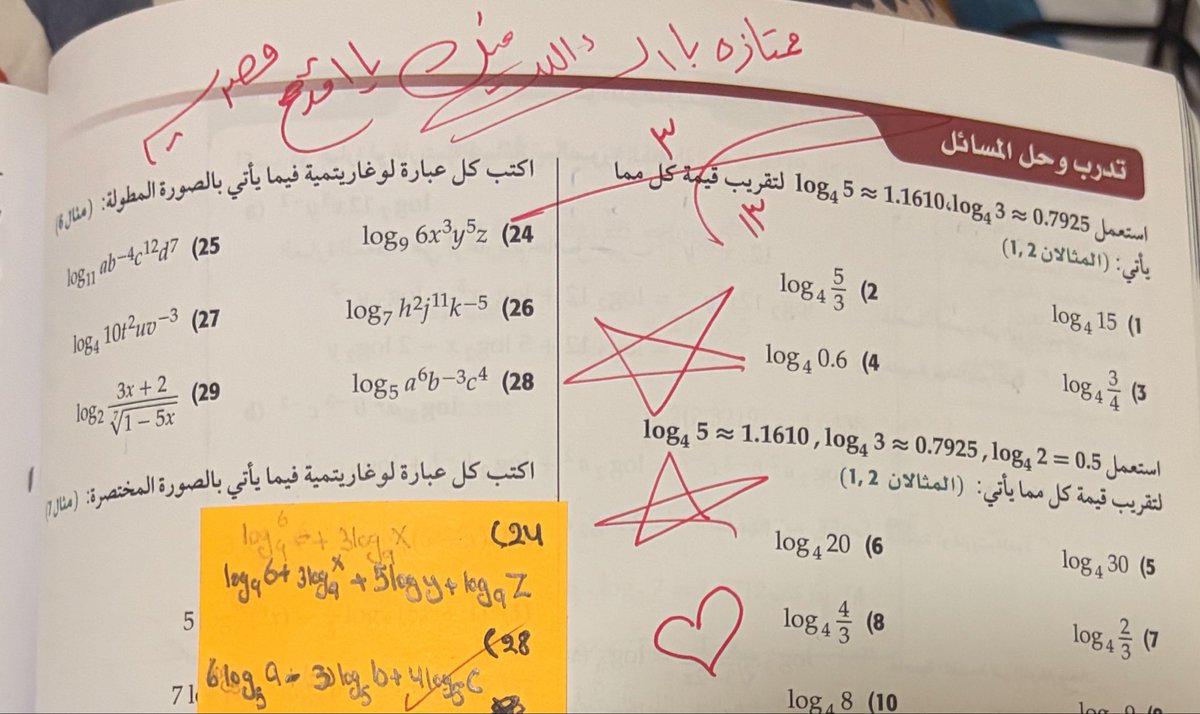 ممتازه
تدرب وحل المسائل
استعمل log₄ 3 ≈ 0.7925، log₄ 5 ≈ 1.1610 لتقريب قيمة كل مما
يأتي: (المثالان 1, 2)
1) log₄ 15
2) log₄ 5/3
3) log₄ 3/4
4) log₄ 0.6
استعمل log₄ 5 ≈ 1.1610 , log₄ 3 ≈ 0.7925 , log₄ 2 = 0.5
لتقريب قيمة كل مما يأتي: (المثالان 1, 2)
5) log₄ 30
6) log₄ 20
7) log₄ 2/3
8) log₄ 4/3
10) log₄ 8
اكتب كل عبارة لوغاريتمية فيما يأتي بالصورة المطولة: (مثال 6)
24) log₉ 6x³y⁵z
25) log₁₁ ab⁻⁴c¹²d⁷
26) log₇ h²j¹¹k⁻⁵
27) log₄ 10t²uv⁻³
28) log₅ a⁶b⁻³c⁴
29) log₂ (3x + 2)/⁷√(1 − 5x)
اكتب كل عبارة لوغاريتمية فيما يأتي بالصورة المختصرة: (مثال 7)
24) log₉ 6 + 3log₉ x
log₉ 6 + 3log₉ x + 5log y + log₉ z
28)
6log₅ a - 3log₅ b + 4log₅ c